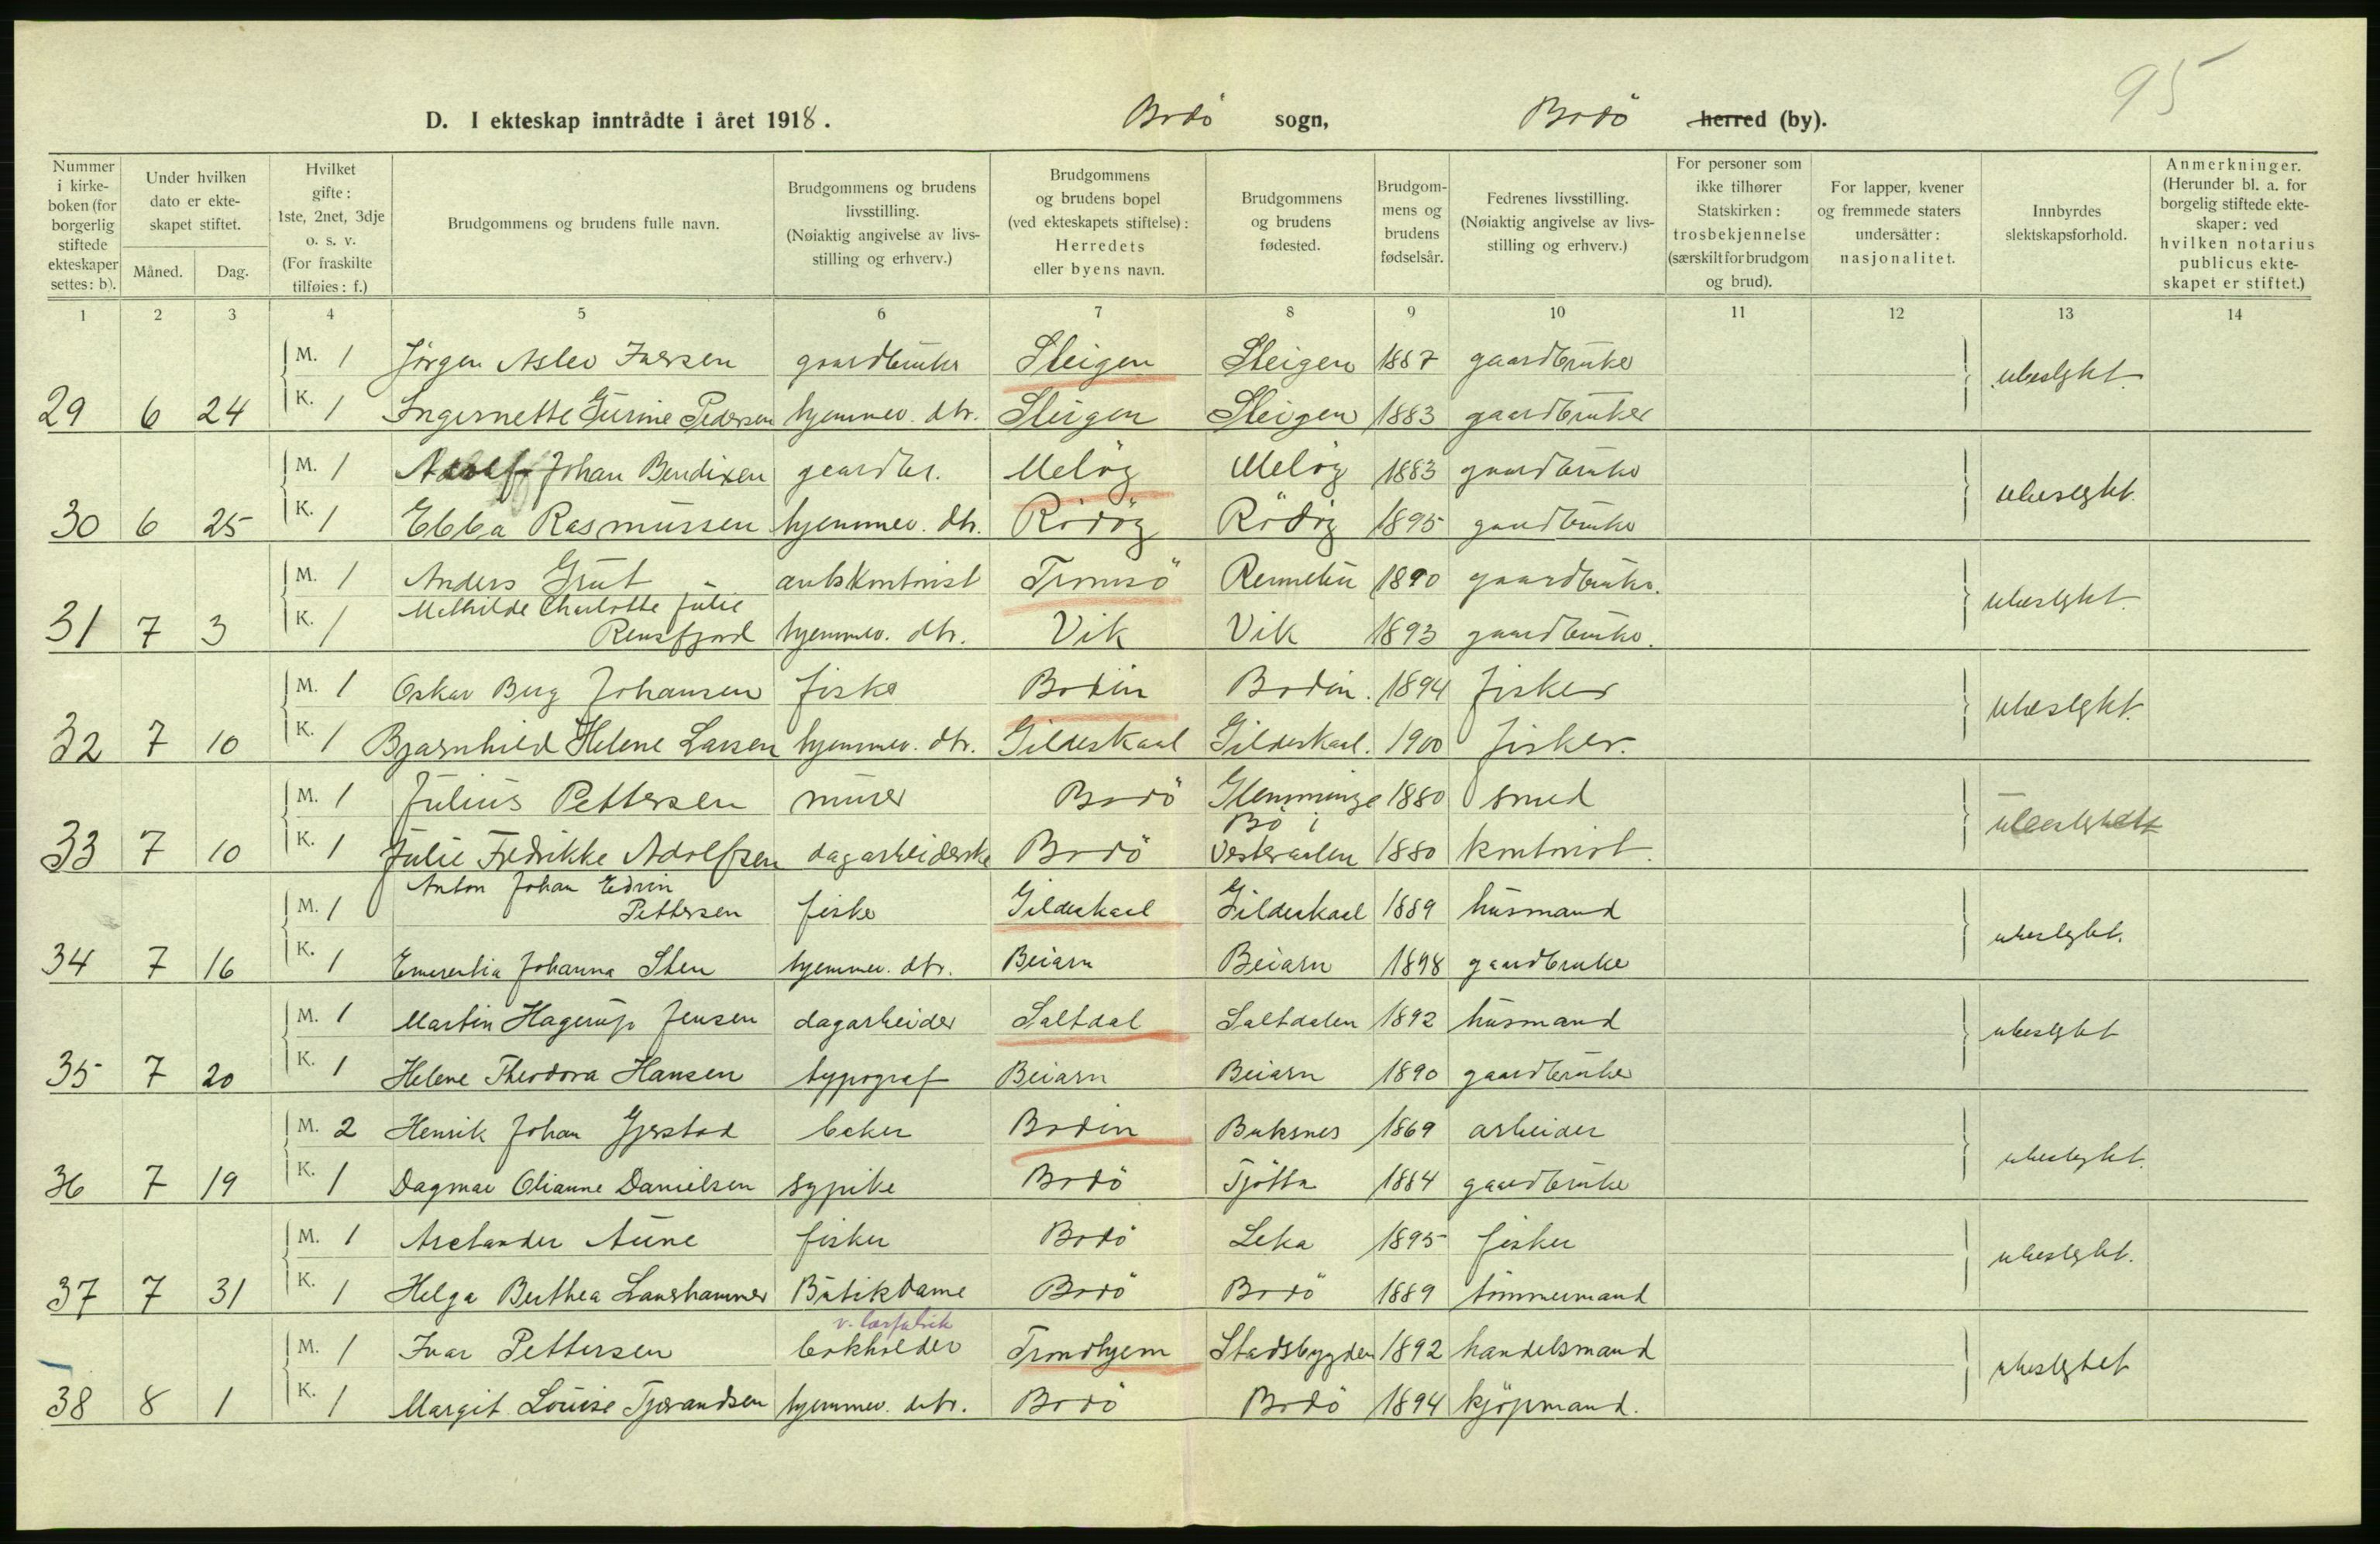 95
D. I ekteskap inntrådte i året 1918. Bodö sogn, Bodö herred (by).
Nummer i kirkeboken (for borgerlig stiftede ekteskaper settes: b). Under hvilken dato er ekteskapet stiftet. Måned. Dag. Hvilket gifte: 1ste, 2net, 3dje o. s. v. (For fraskilte tilføies: f.) Brudgommens og brudens fulle navn. Brudgommens og brudens livsstilling. (Nøiaktig angivelse av livsstilling og erhverv.) Brudgommens og brudens bopel (ved ekteskapets stiftelse): Herredets eller byens navn. Brudgommens og brudens fødested. Brudgommens og brudens fødselsår. Fedrenes livsstilling. (Nøiaktig angivelse av livsstilling og erhverv.) For personer som ikke tilhører Statskirken: trosbekjennelse (særskilt for brudgom og brud). For lapper, kvener og fremmede staters undersåtter: nasjonalitet. Innbyrdes slektskapsforhold. Anmerkninger. (Herunder bl. a. for borgelig stiftede ekteskaper: ved hvilken notarius publicus ekteskapet er stiftet.)
1 2 3 4 5 6 7 8 9 10 11 12 13 14
M. 1 Jörgen Aslev Iversen gaardbruker Steigen Steigen 1887 gaardbruker ubeslgkt.
29 6 24 K. 1 Ingernette Gurine Pedersen hjemmev. dtr. Steigen Steigen 1883 gaardbruker
M. 1 Adolf Johan Bendixen gaardbr. Melöy Melöy 1883 gaardbruker ubeslgkt.
30 6 25 K. 1 Ebba Rasmussen hjemmev. dtr. Rödöy Rödöy 1895 gaardbruker
M. 1 Anders Grut amtskontorist Tromsö 1890 gaardbruker. ubeslgkt.
31 7 3 K. 1 Mathilde Charlotte Julie
Rensfjord hjemmev. dtr. Vik Vik 1893 gaardbruker.
M. 1 Oskar Berg Johansen fisker Bodin Bodin. 1894 fisker ubeslgkt.
32 7 10 K. 1 Bjarnhild Helene Larsen hjemmev. dtr. Gildeskaal Gildeskaal. 1900 fisker.
M. 1 Julius Pettersen murer Bodö Glemminge 1880 smed ubeslgktet
33 7 10 K. 1 Julie Fredrikke Adolfsen dagarbeiderske Bodö Bö i
Vesteraalen 1880 kontorist.
M. 1 Anton Johan Edvin
Pettersen fisker Gildeskaal Gildeskaal 1889 husmand ubeslgkt.
34 7 16 K. 1 Emerentia Johanna Sten hjemmev. dtr. Beiarn Beiarn 1898 gaardbruker
M. 1 Martin Hagerup Jensen dagarbeider Saltdal Saltdalen 1892 husmand ubeslgkt
35 7 20 K. 1 Helene Theodora Hansen typograf Beiarn Beiarn 1890 gaardbruker
M. 2 Henrik Johan Gjerstad baker Bodin Buksnes 1869 arbeider ubeslgkt.
36 7 19 K. 1 Dagmar Olianne Danielsen sypike Bodö Tjötta 1884 gaardbruker
M. 1 Arelander Aune fisker Bodö Leka 1895 fisker ubeslgkt.
37 7 31 K. 1 Helga Berthea Langhammer Butikdame Bodö Bodö 1889 tömmermand
M. 1 Ivar Pettersen v. lærfabrik
bokholder Trondhjem Stadsbygden 1892 handelsmand ubeslgtet
38 8 1 K. 1 Margit Louise Tjærandsen hjemmev. dtr. Bodö Bodö 1894 kjöpmand.